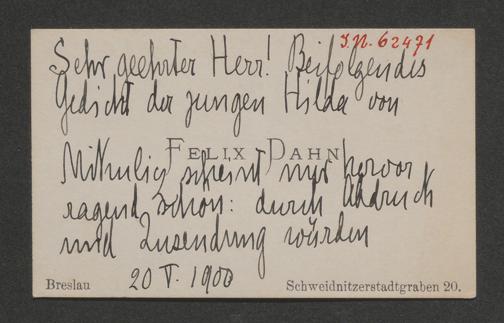 J.N. 62471
Sehr geehrter Herr! Beifolgendes
Gedicht der jungen Hilda von
FELIX DAHN
Mikulicz scheint mir hervor
ragend schön: durch Abdruck
und Zusendung würden
Breslau 20 V. 1900 Schweidnitzerstadtgraben 20.